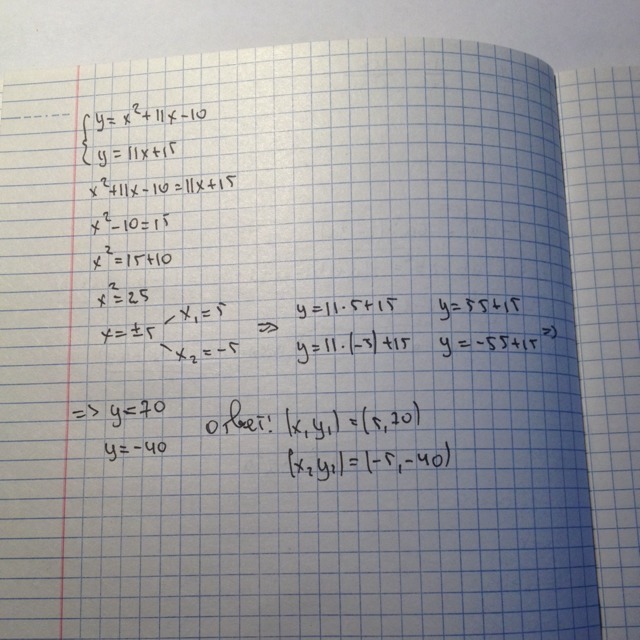 {y=x²+11x-10
{y=11x+15
x²+11x-10=11x+15
x²-10=15
x²=15+10
x²=25
x=±5 x₁=5 x₂=-5 => y=11·5+15 y=55+15
y=11·(-5)+15 y=-55+15 =>
=> y=70
y=-40
ответ: (x,y₁)=(5,70)
(x₂y₁)=(-5,-40)